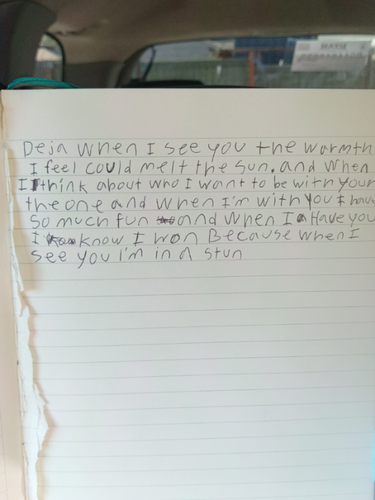 Deja when I see you the warmth
I feel could melt the sun, and when
I think about who I want to be with your
the one and when I'm with you I hav
so much fun and when I Have you
I know I won Because when I
see you I'm in a stun